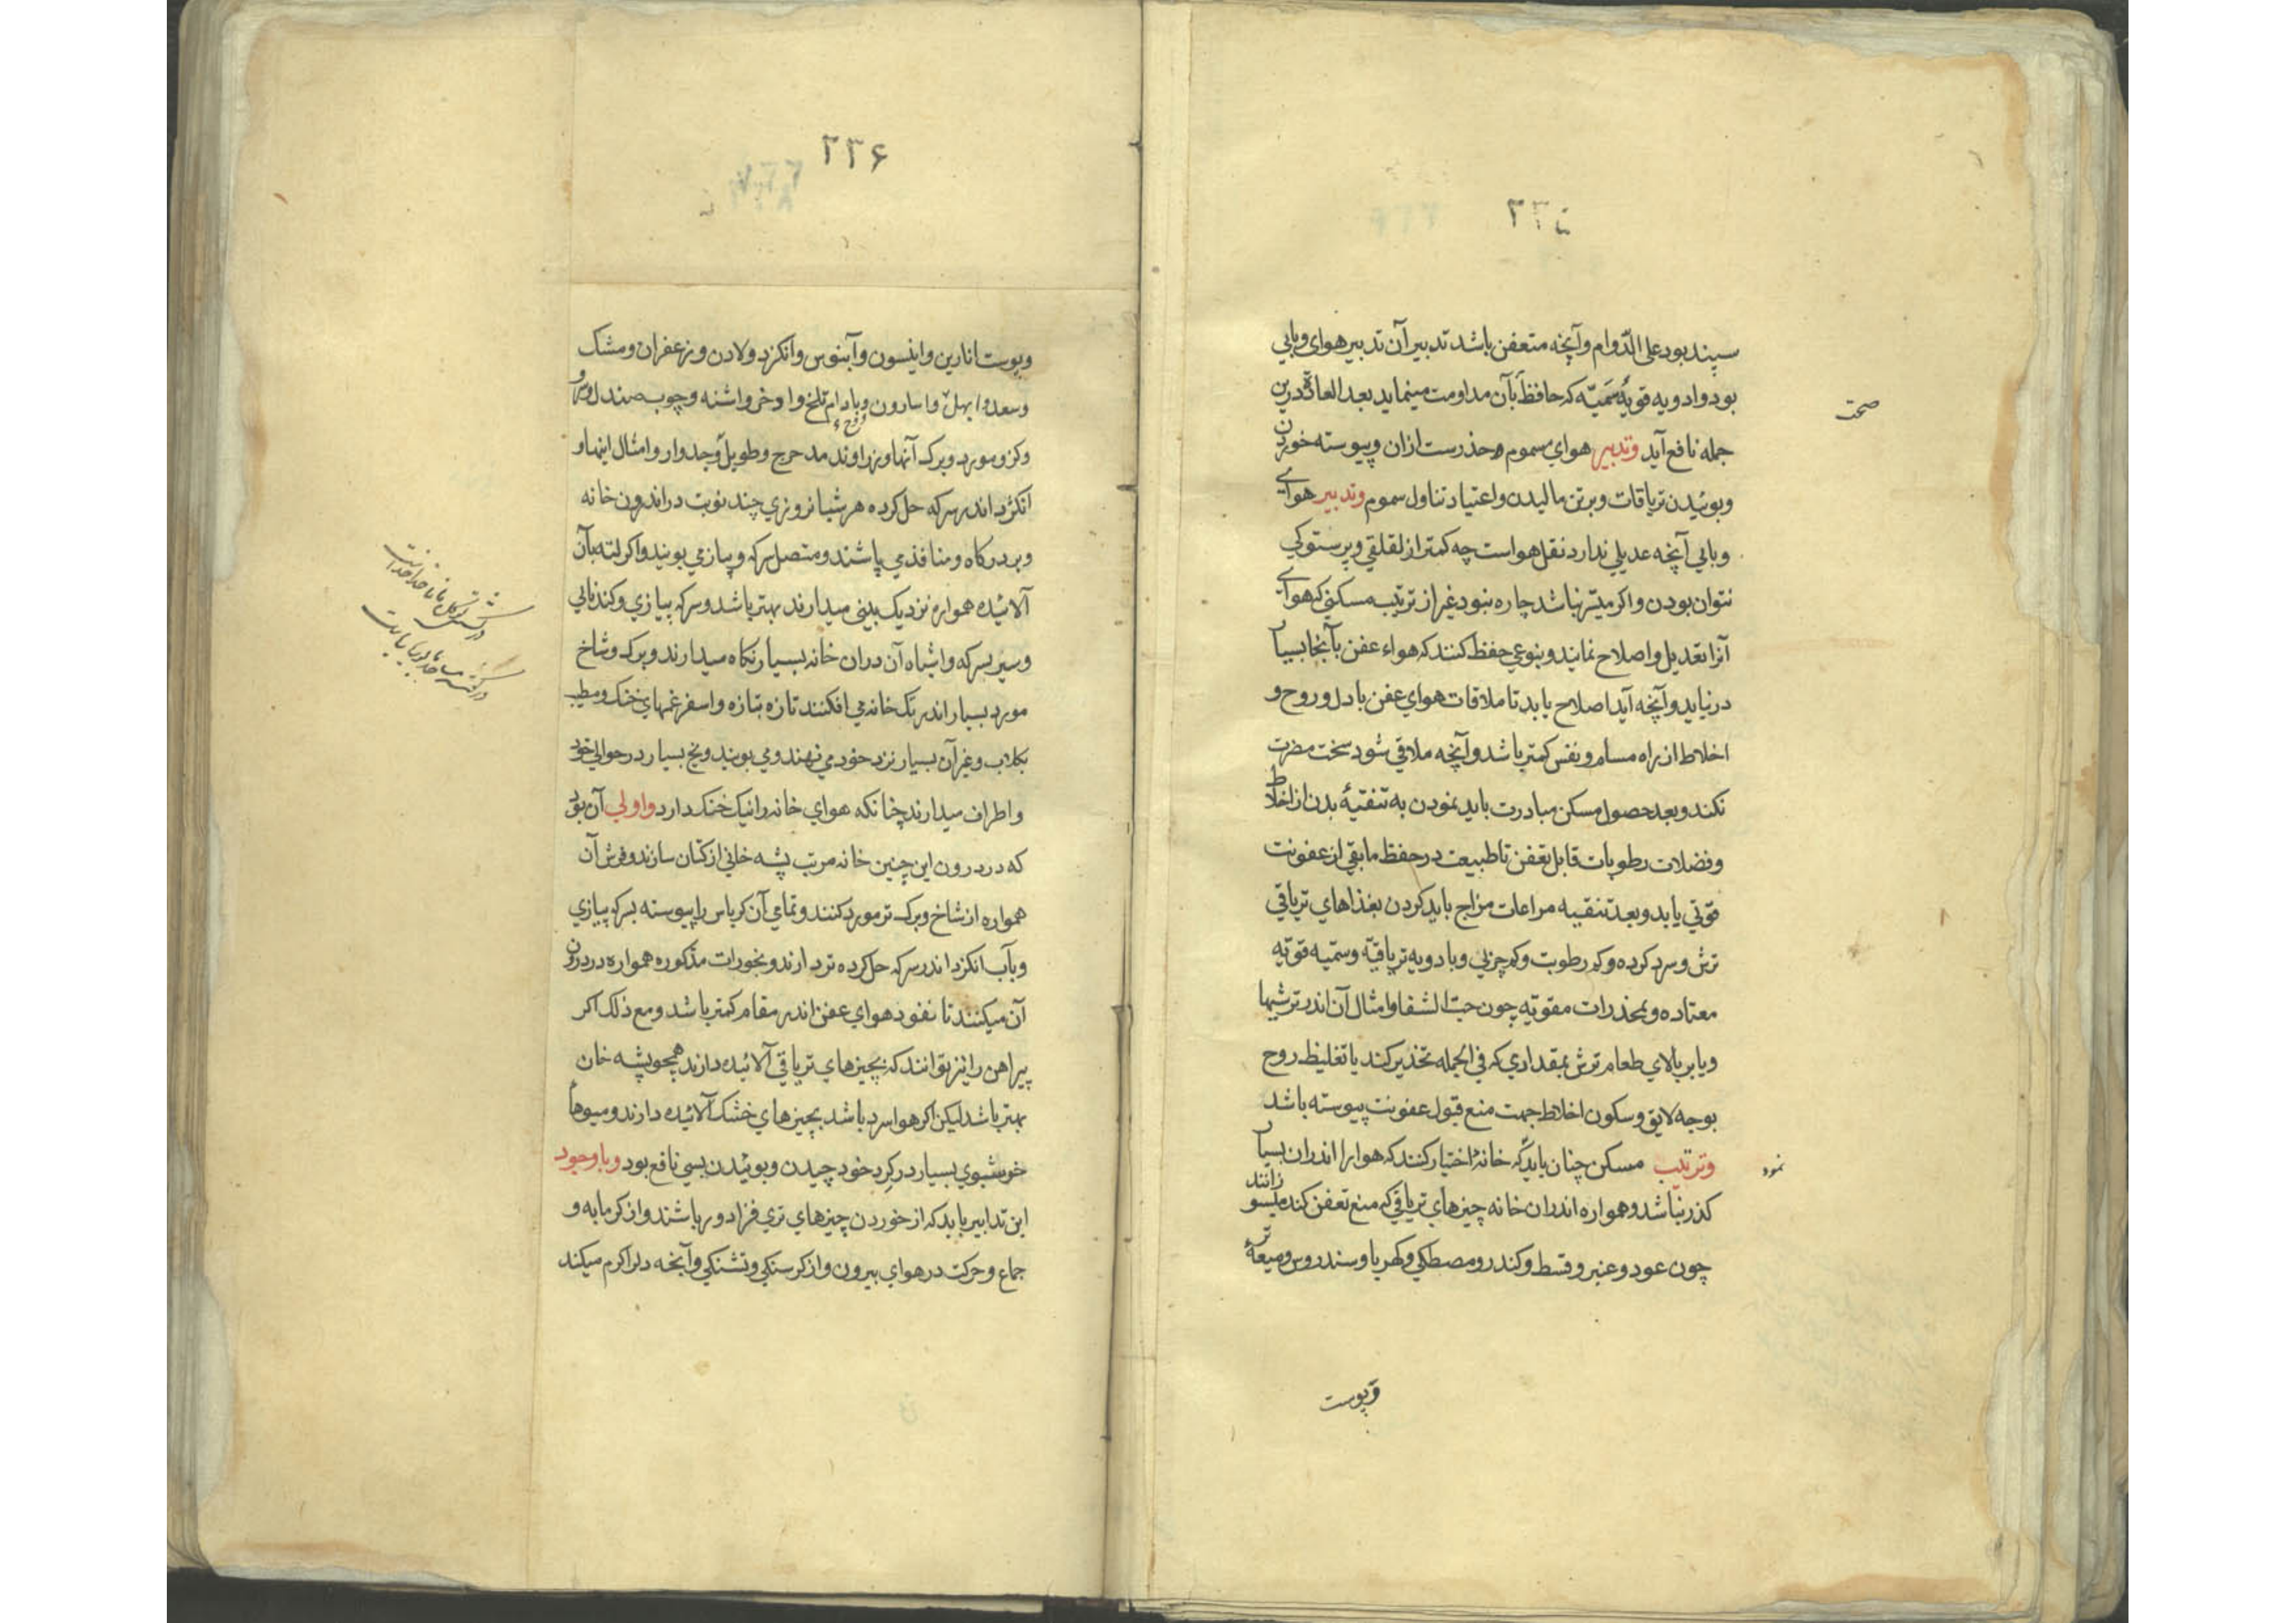 ۲۳۵
سپند بود علی الدّوام وآنچه متعفن باشد تدبیر آن تدبیر هوای وبایی
بود وادویه قویهٔ سَمیّه که حافظ بآن مداومت مینماید بعد العادة درین
صحت
جمله نافع آید وتدبیر هوای مسموم حذرست ازان وپیوسته خوردن
وبوئیدن تریاقات وبرتن مالیدن واعتیاد تناول سموم وتدبیر هوای
وبایی آنچه عدیلی ندارد نقل هواست چه کمتر از لقلقی وپرستوکی
نتوان بودن واکر میسّر نباشد چاره نبود غیر از ترتیب مسکنی که هوای
آنرا تعدیل واصلاح نمایند وبنوعی حفظ کنند که هواء عفن بآنجا بسیار
درنیاید وآنچه آید اصلاح یابد تا ملاقات هوای عفن با دل وروح و
اخلاط از راه مسام ونفس کمتر باشد وآنچه ملاقی شود سخت مضرت
نکند وبعد حصول مسکن مبادرت باید نمودن به تنقیهٔ بدن از اخلاط
وفضلات رطوبات قابل تعفن تا طبیعت در حفظ مابقی از عفونت
قوتی یابد وبعد تنقیه مراعات مزاج باید کردن بغذاهای تریاقی
ترش وسرد کرده وکم رطوبت وکم چربی وبادویه تریاقیّه وسمّیه قویّه
معتاده وبمخدرات مقویّه چون حبّ الشفا وامثال آن اندر ترشیها
ویا بر بالای طعام ترش بمقداری که فی الجمله تخذیر کند یا تغلیظ روح
بوجه لایق وسکون اخلاط جهت منع قبول عفونت پیوسته باشد
وترتیب مسکن چنان باید که خانهٔ اختیار کنند که هوا را اندران بسیار
نمود
کذر نباشد وهمواره اندران خانه چیزهای تریاقی که منع تعفن کند میسوزانند
چون عود وعنبر وقسط وکندر ومصطکی وکهربا وسندروس ومیعهٔ تر
وپوست
۲۳۶
وپوست انارین وانیسون وآبنوس وانکزد ولادن وزعفران ومشک
وسعد وابهل واسارون وبادام تلخ واذخر واشنه وچوب صندل وسرو
وکز ومورد وبرک آنها وزراوند مدحرج وطویل وجدوار وامثال اینها و
انکژد اندر سرکه حل کرده هر شبانروزی چند نوبت در اندرون خانه
وبر درکاه ومنافذ می پاشند ومتصل سرکه وپیاز می بویند واکر لته بآن
آلائیده همواره نزدیک بینی میدارند بهتر باشد وسرکه پیازی وکندنایی
وسیر بسرکه واشباه آن دران خانه بسیار نکاه میدارند وبرک وشاخ
مورد بسیار اندر تک خانه می افکنند تازه بتازه واسفرغمهای خنک ومطیب
بکلاب وغیر آن بسیار نزد خود می نهند ومی بویند ویخ بسیار در حوالی خود
واطراف میدارند چنانکه هوای خانه را نیک خنک دارد واولی آن بود
که در درون این چنین خانه مرتب پشه خانی از کتان سازند وفرش آن
همواره از شاخ وبرک تر مورد کنند وتمامی آن کرباس را پیوسته بسرکه پیازی
وبآب انکزد اندر سرکه حل کرده تر دارند وبخورات مذکوره همواره در درون
آن میکنند تا نفوذ هوای عفن اندر مقام کمتر باشد ومع ذلک اکر
پیراهن را نیز توانند که بچیزهای تریاقی آلائیده دارند همچو پشه خان
بهتر باشد لیکن اکر هوا سرد باشد بچیزهای خشک آلائیده دارند ومیوهاء
خوشبوی بسیار در کرد خود چیدن وبوئیدن بسی نافع بود وبا وجود
این تدابیر باید که از خوردن چیزهای تری فزا دور باشند واز کرمابه و
جماع وحرکت در هوای بیرون واز کرسنکی وتشنکی وآنچه دل را کرم میکند